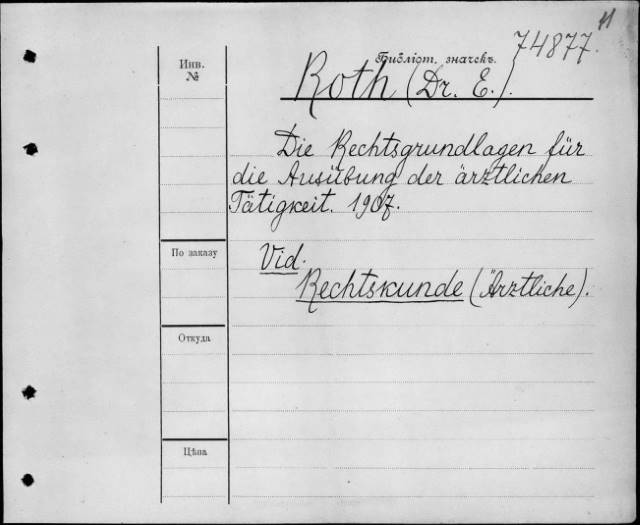 11
74877.
Инв.
№
Библіот. значекъ.
Roth (Dr. E.).
Die Rechtsgrundlagen für
die Ausübung der ärztlichen
Tätigkeit. 1907.
По заказу
Vid.
Rechtskunde (Ärztliche).
Откуда
Цѣна